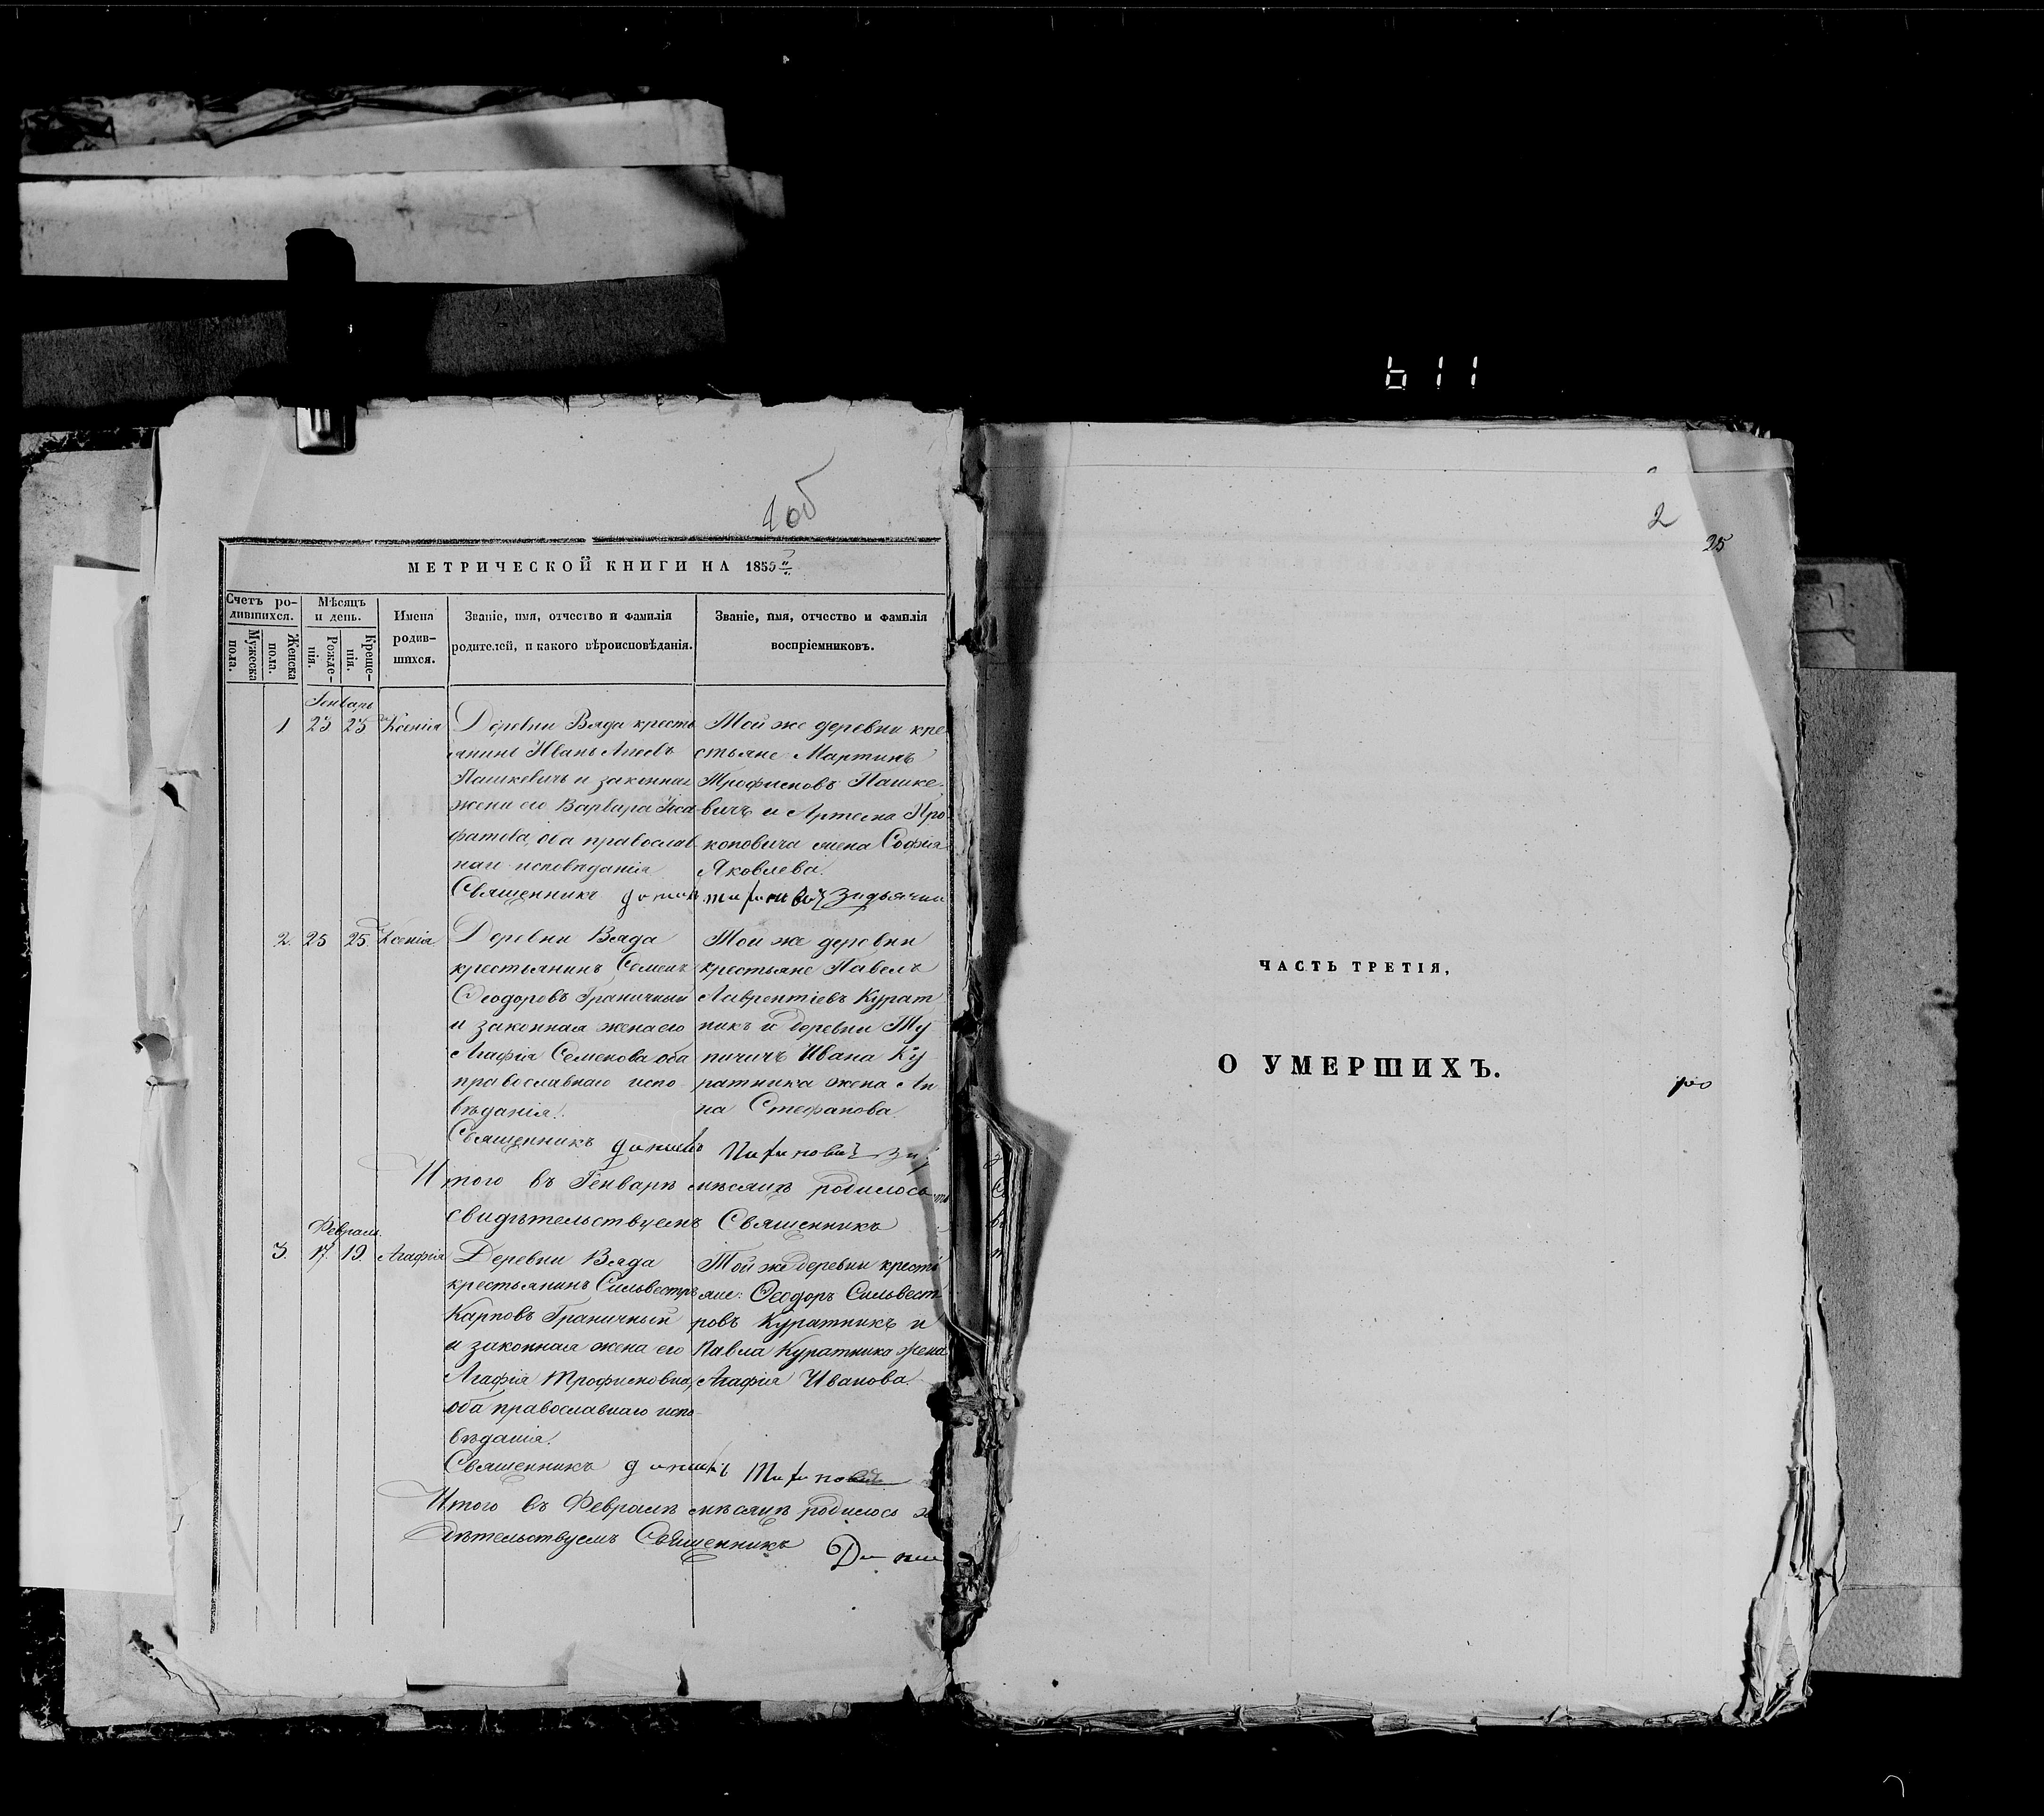 611
1об
МЕТРИЧЕСКОЙ КНИГИ НА 1855
Счетъ ро-
дившихся.
Мужеска
пола.
Женска
пола.
Мѣсяцъ
и день.
Рожде-
нія.
Креще-
нія.
Имена
родив-
шихся.
Званіе, имя, отчество и фамилія
родителей, и какого вѣроисповѣданія.
Званіе, имя, отчество и фамилія
воспріемниковъ.
Генварь
1 23 23 Ксенія
Деревни Вяда кресть
янинъ Иванъ
Пашкевичь и законная
жена его Варвара
оба православ
наго исповѣданія
Священникъ
Той же деревни кре
стьяне Мартинъ
Трофимовъ Пашке-
вичъ и Артема Про
коповича жена Софія
Яковлева.
2. 25 25 Ксенія
Деревни Вяда
крестьянинъ Семенъ
Ѳеодоровъ Граничный
и законная жена его
Агафія Семенова оба
православнаго испо-
вѣданія.
Священникъ
Той же деревни
крестьяне Павелъ
Лаврентіевъ Курат
никъ и деревни Ту
пичичъ Ивана Ку
ратника жена Ан
на Стефанова
Итого въ Генварѣ мѣсяцѣ родилось
свидѣтельствуемъ Священникъ
Февраль.
3. 17. 19. Агафія
Деревни Вяда
крестьянинъ Сильвестръ
Карповъ Граничный
и законная жена его
Агафія Трофимовна,
оба православнаго испо-
вѣданія.
Священникъ
Той же деревни кресть
яне: Ѳеодоръ Сильвест
ровъ Куратникъ и
Павла Куратника жена
Агафія Иванова.
Итого въ Февралѣ мѣсяцѣ родилось
дѣтельствуемъ Священникъ
2
25
ЧАСТЬ ТРЕТІЯ,
О УМЕРШИХЪ.